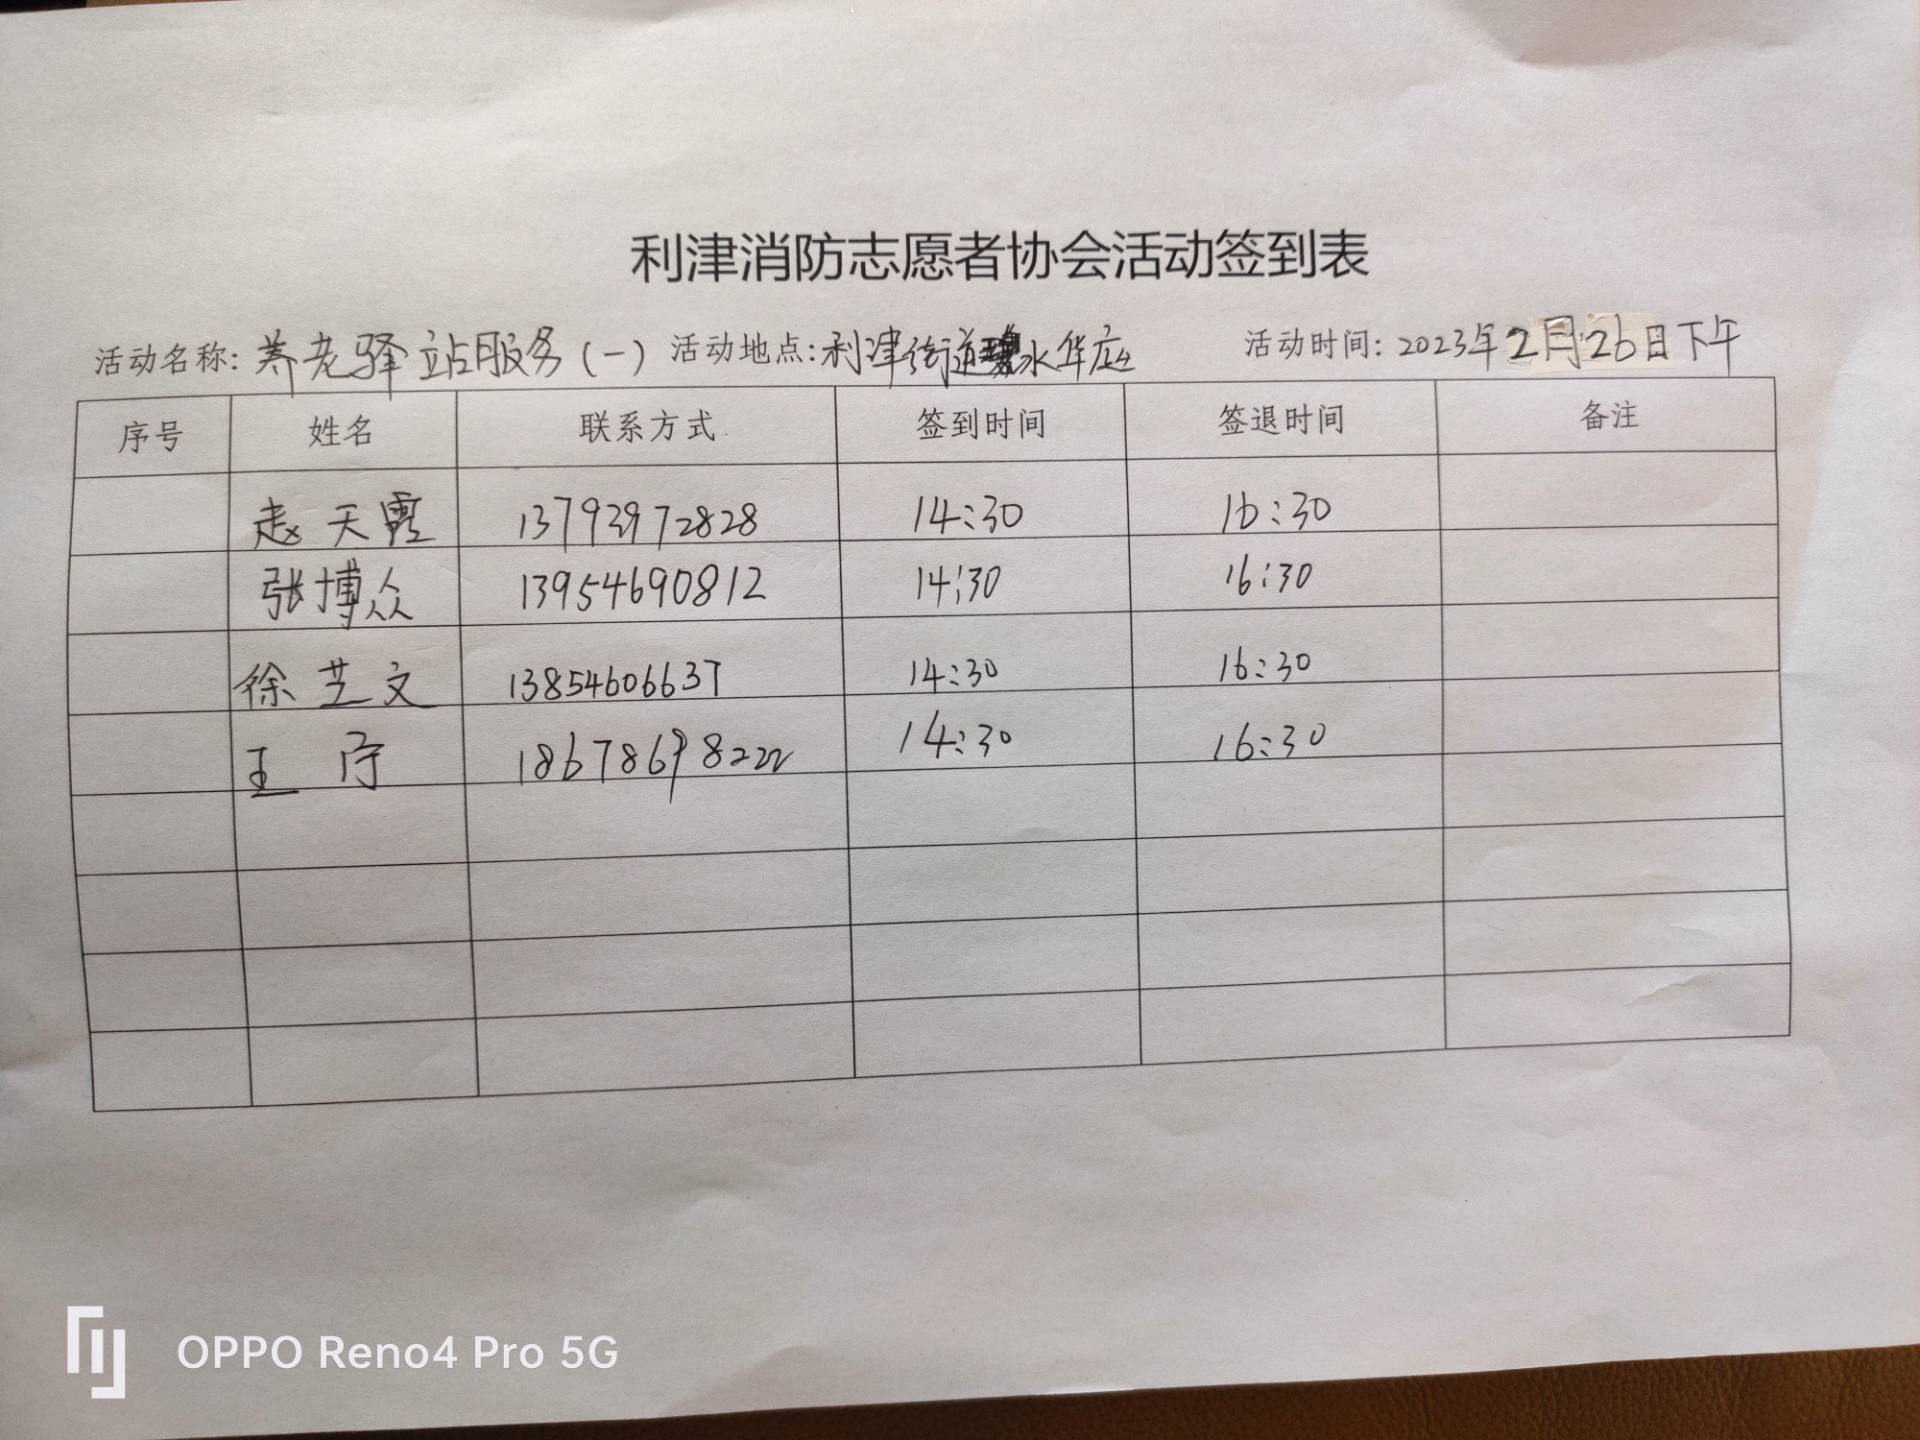 利津消防志愿者协会活动签到表
活动名称: 养老驿站服务(一) 活动地点: 利津街道碧水华庭 活动时间: 2023年2月26日下午
序号 姓名 联系方式 签到时间 签退时间 备注
赵天霞 13793972828 14:30 16:30
张博众 13954690812 14:30 16:30
徐芝文 13854606637 14:30 16:30
王 18678698222 14:30 16:30
OPPO Reno4 Pro 5G